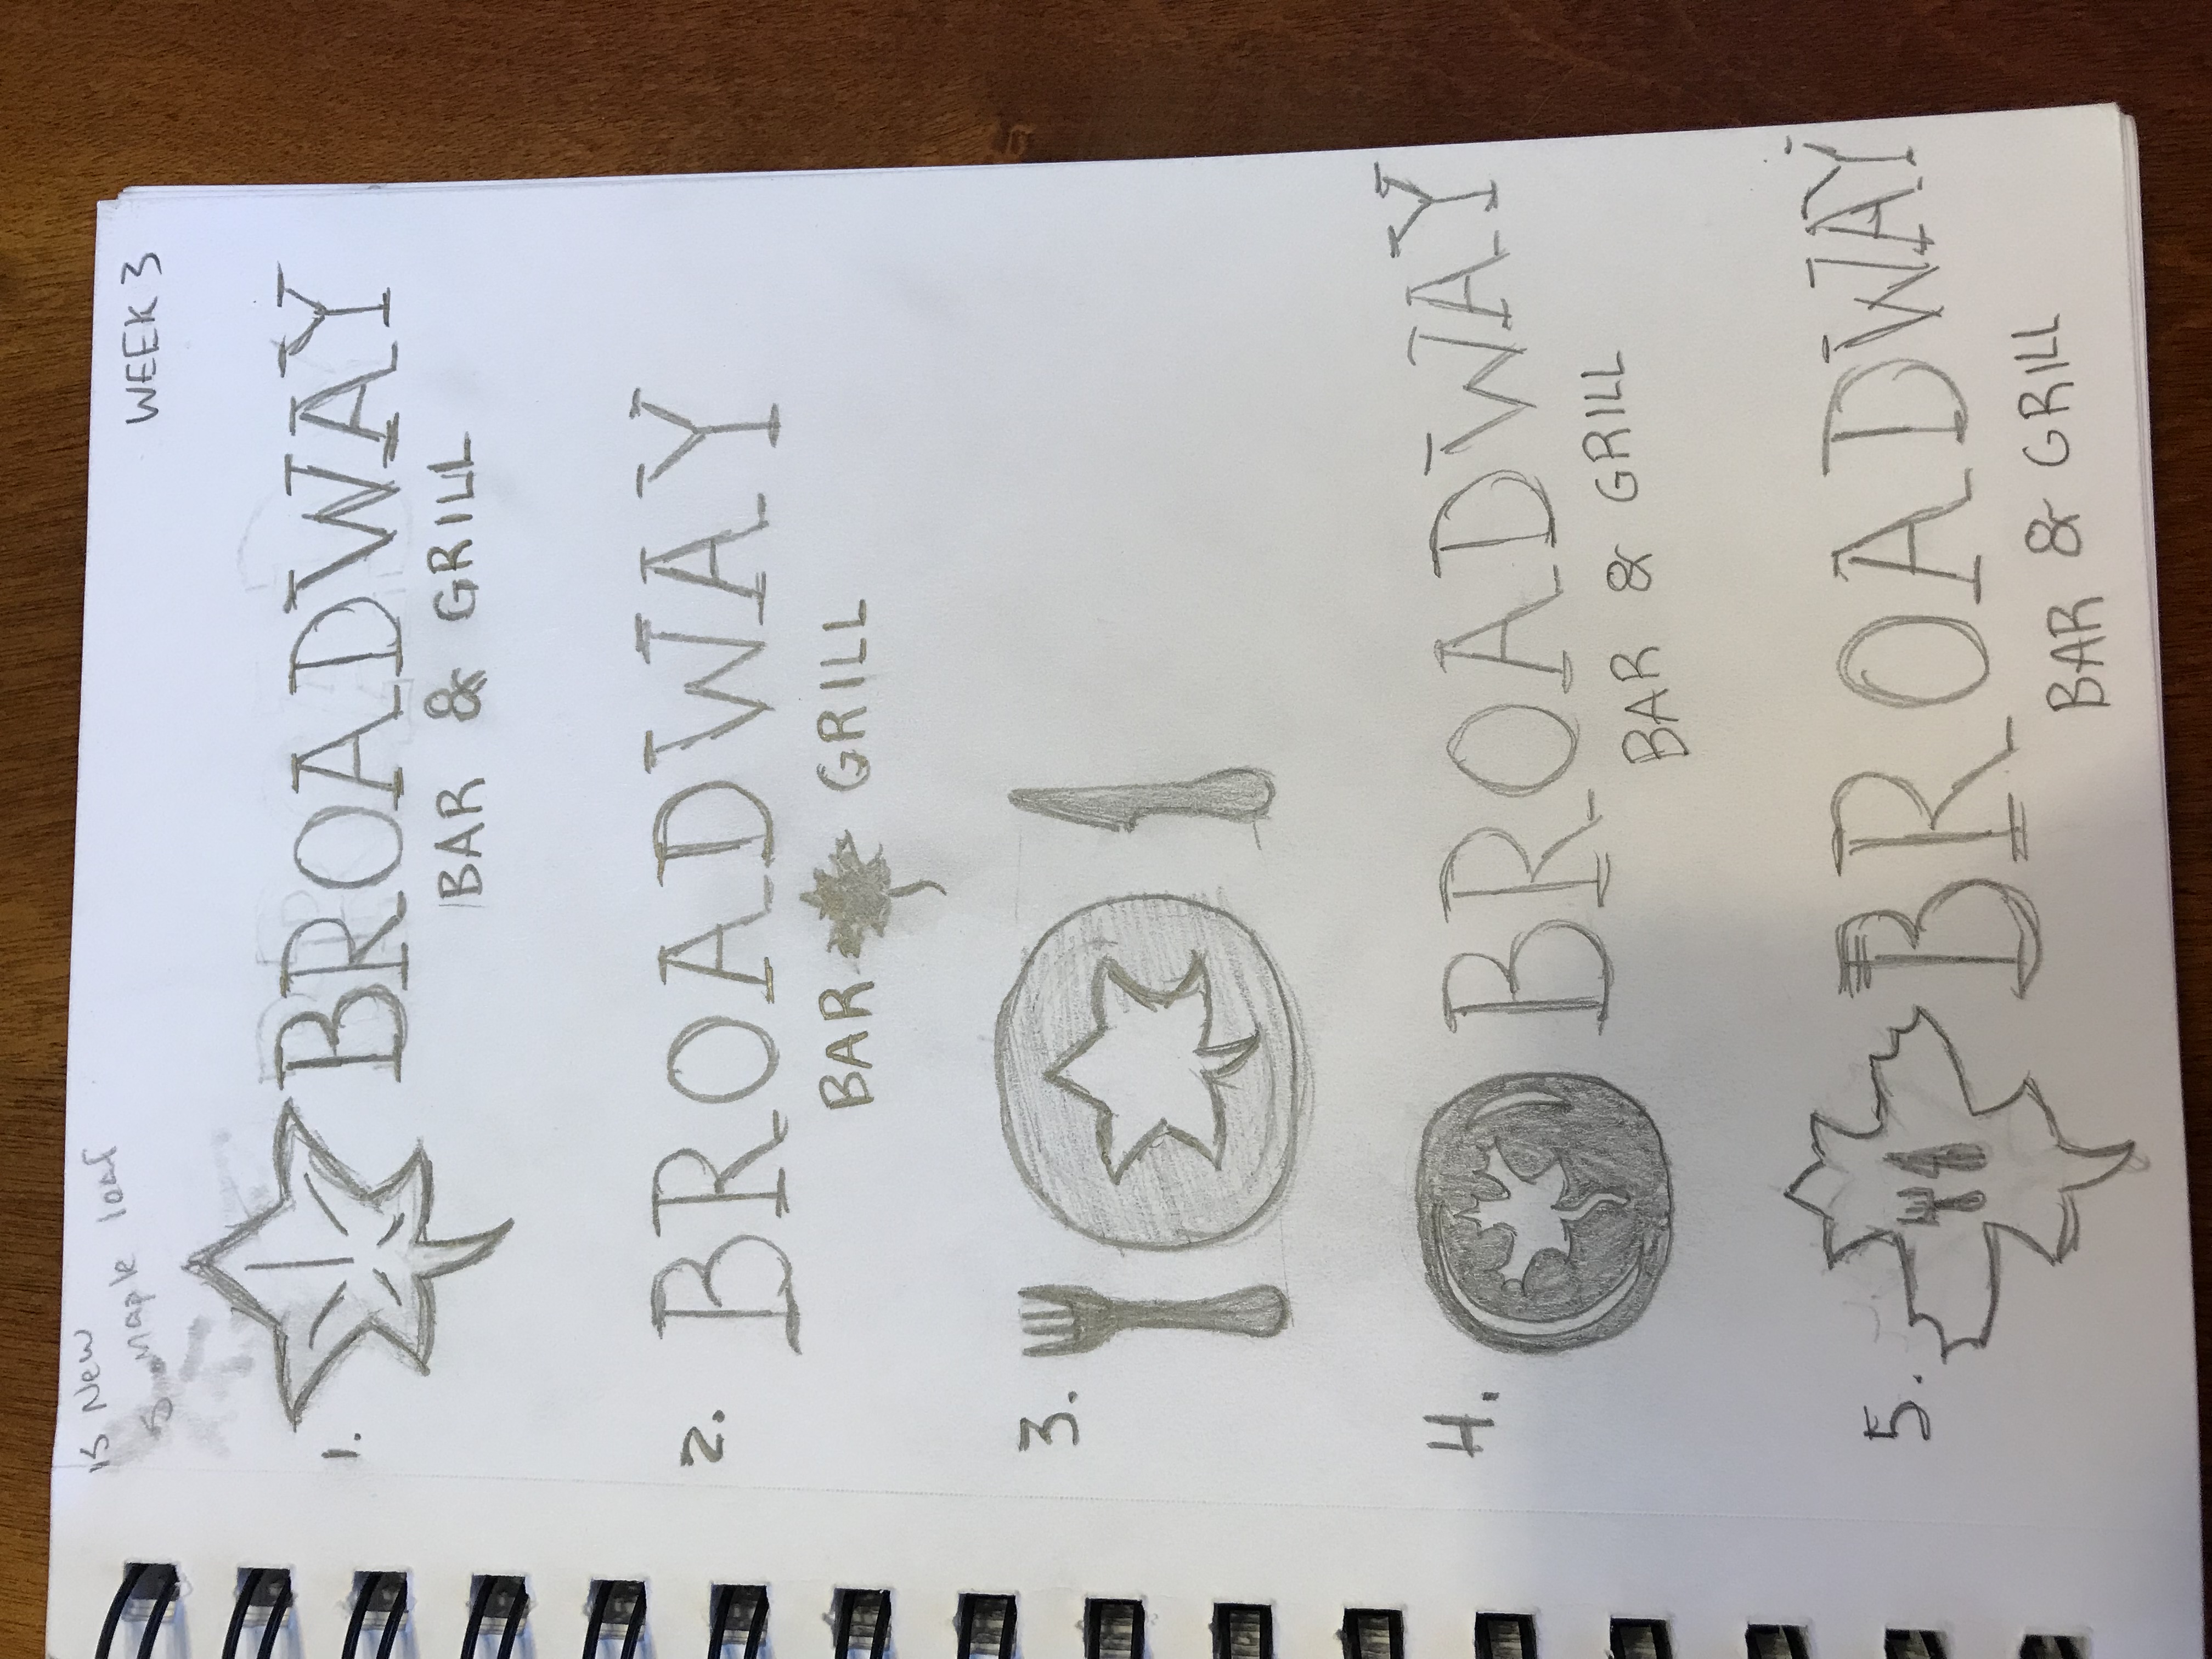 15 New
5 Maple leaf
WEEK 3
1. BROADWAY
BAR & GRILL
2. BROADWAY
BAR GRILL
3.
4. BROADWAY
BAR & GRILL
5. BROADWAY
BAR & GRILL